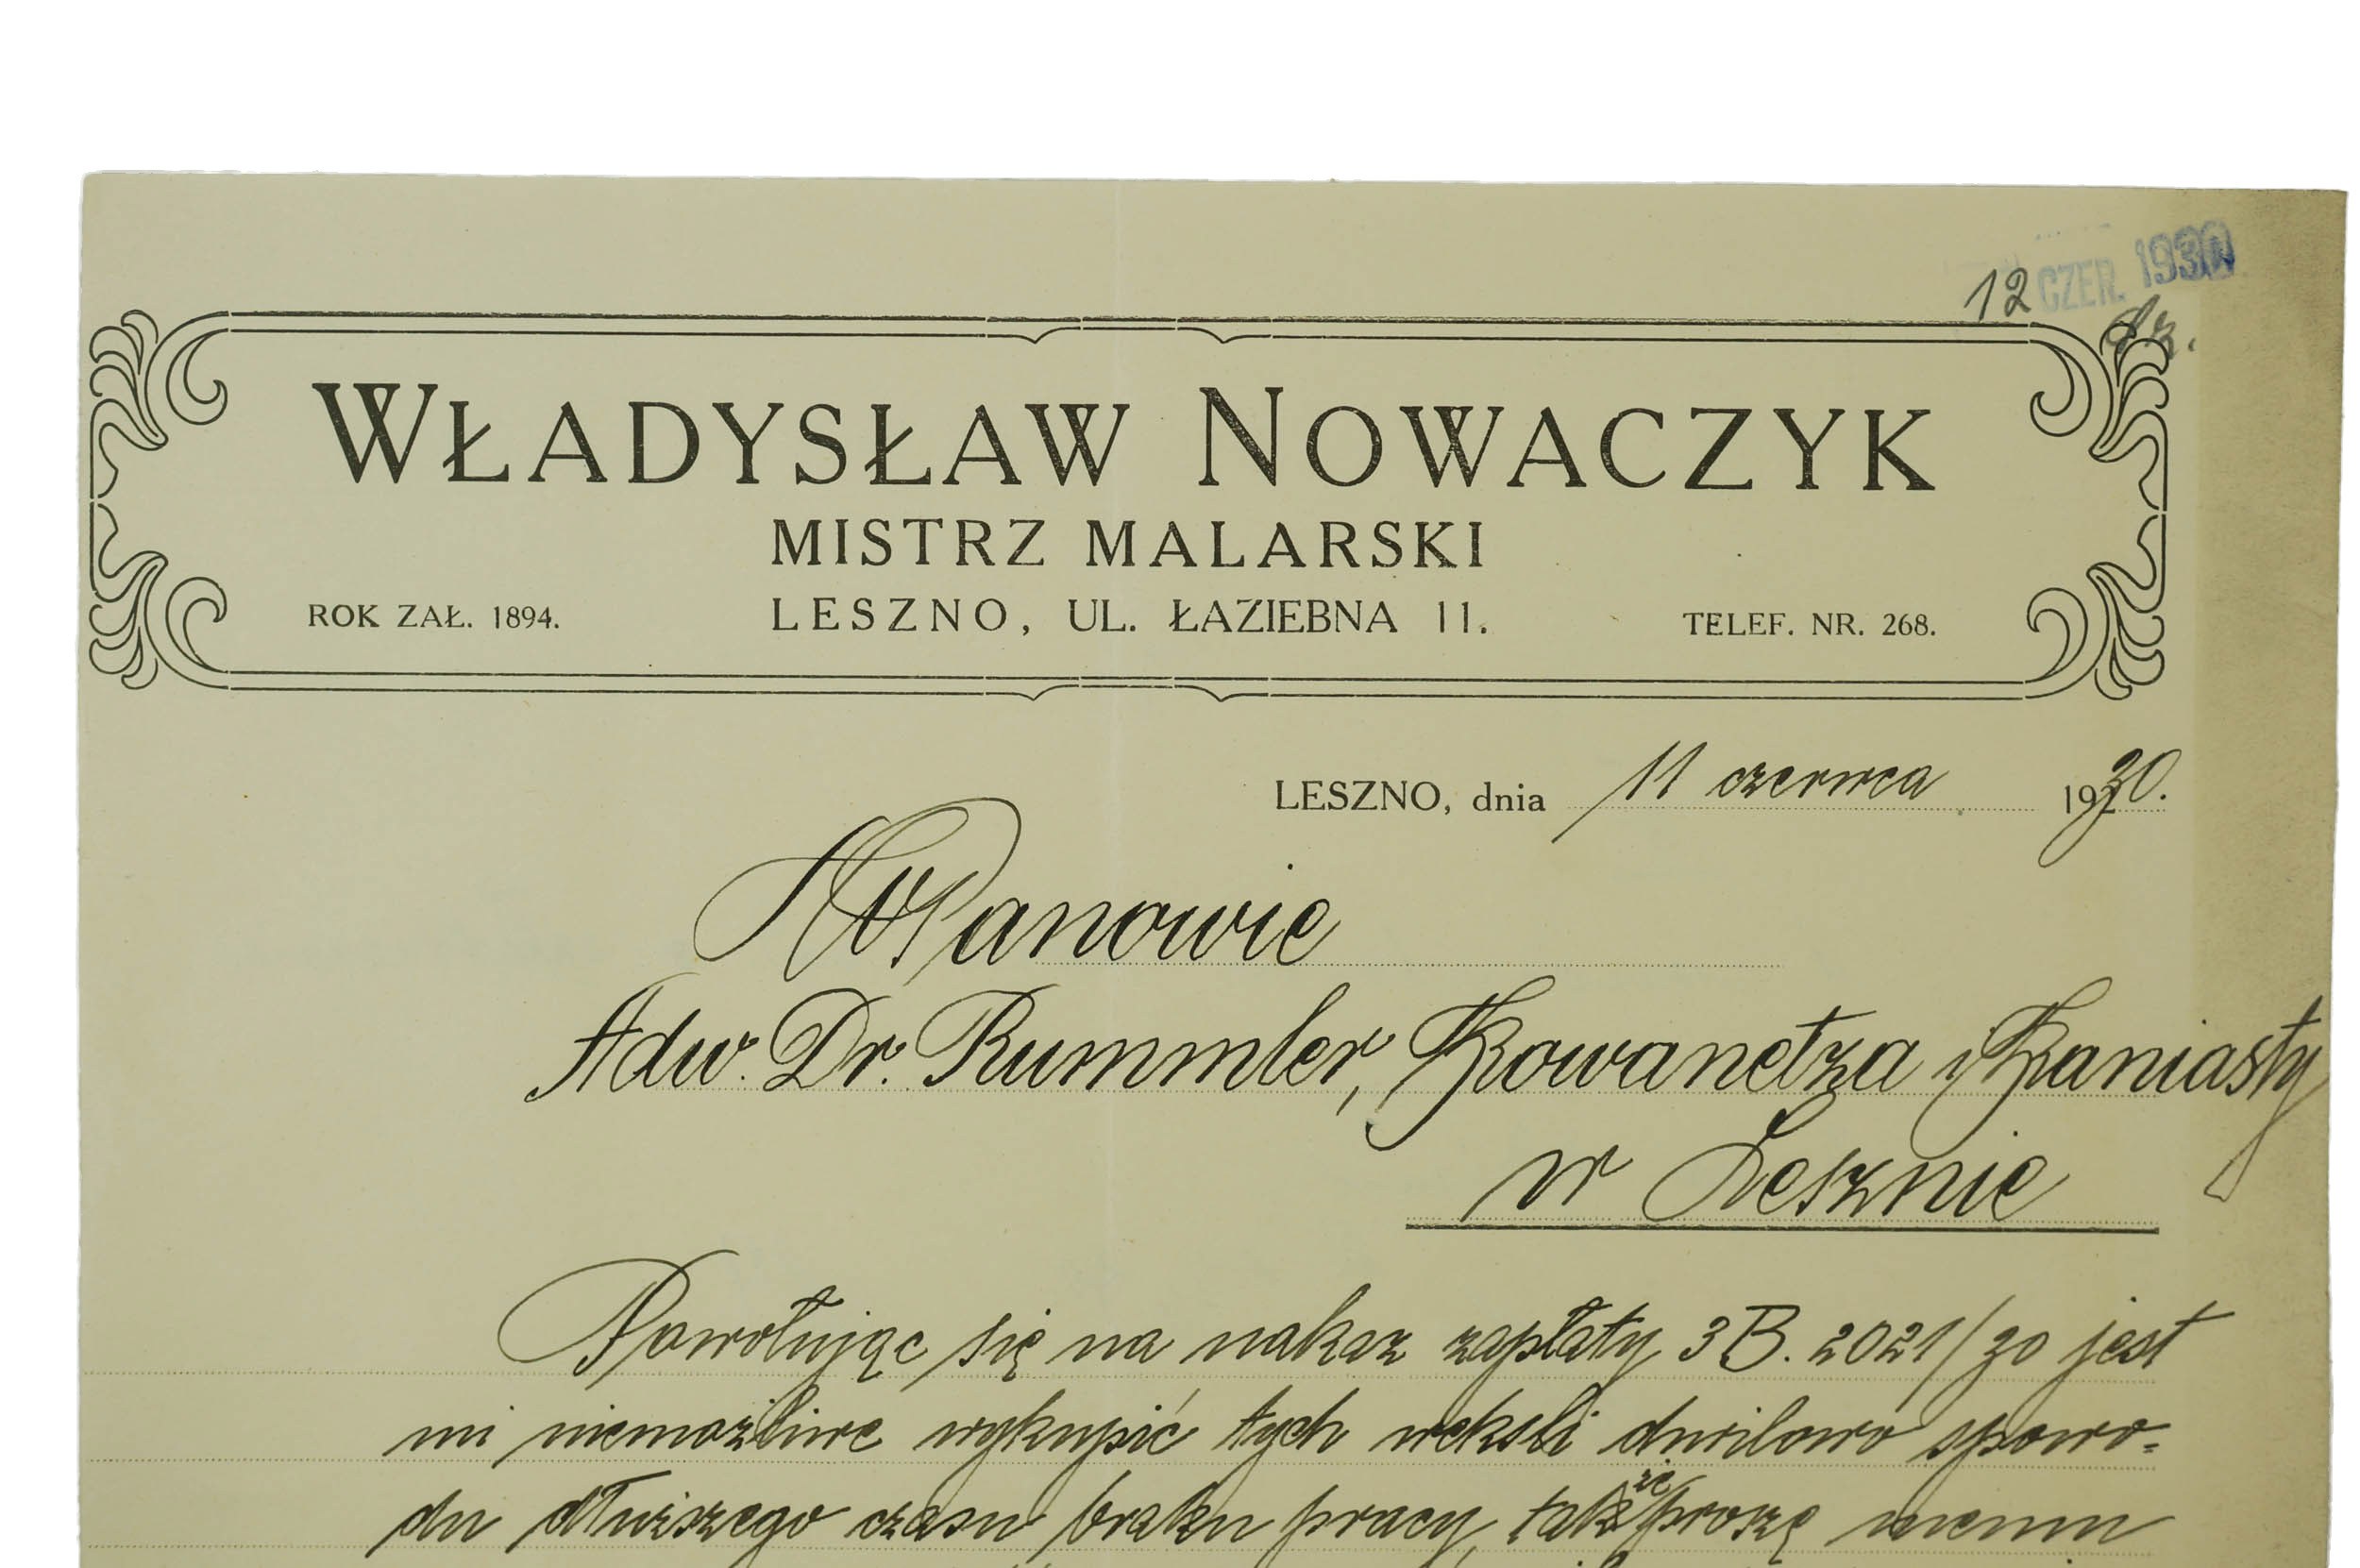 12 CZER. 1930
WŁADYSŁAW NOWACZYK
MISTRZ MALARSKI
ROK ZAŁ. 1894. LESZNO, UL. ŁAZIEBNA 11. TELEF. NR. 268.
LESZNO, dnia 11 czerwca 1930.
WPanowie
Adw. Dr. Rummler, Kowanetza i Kaniasty
w Lesznie
Powołując się na nakaz zapłaty 3 B. 2021/30 jest
mi niemożliwe wykupić tych weksli chwilowo spowo=
du dłuższego czasu braku pracy, także proszę